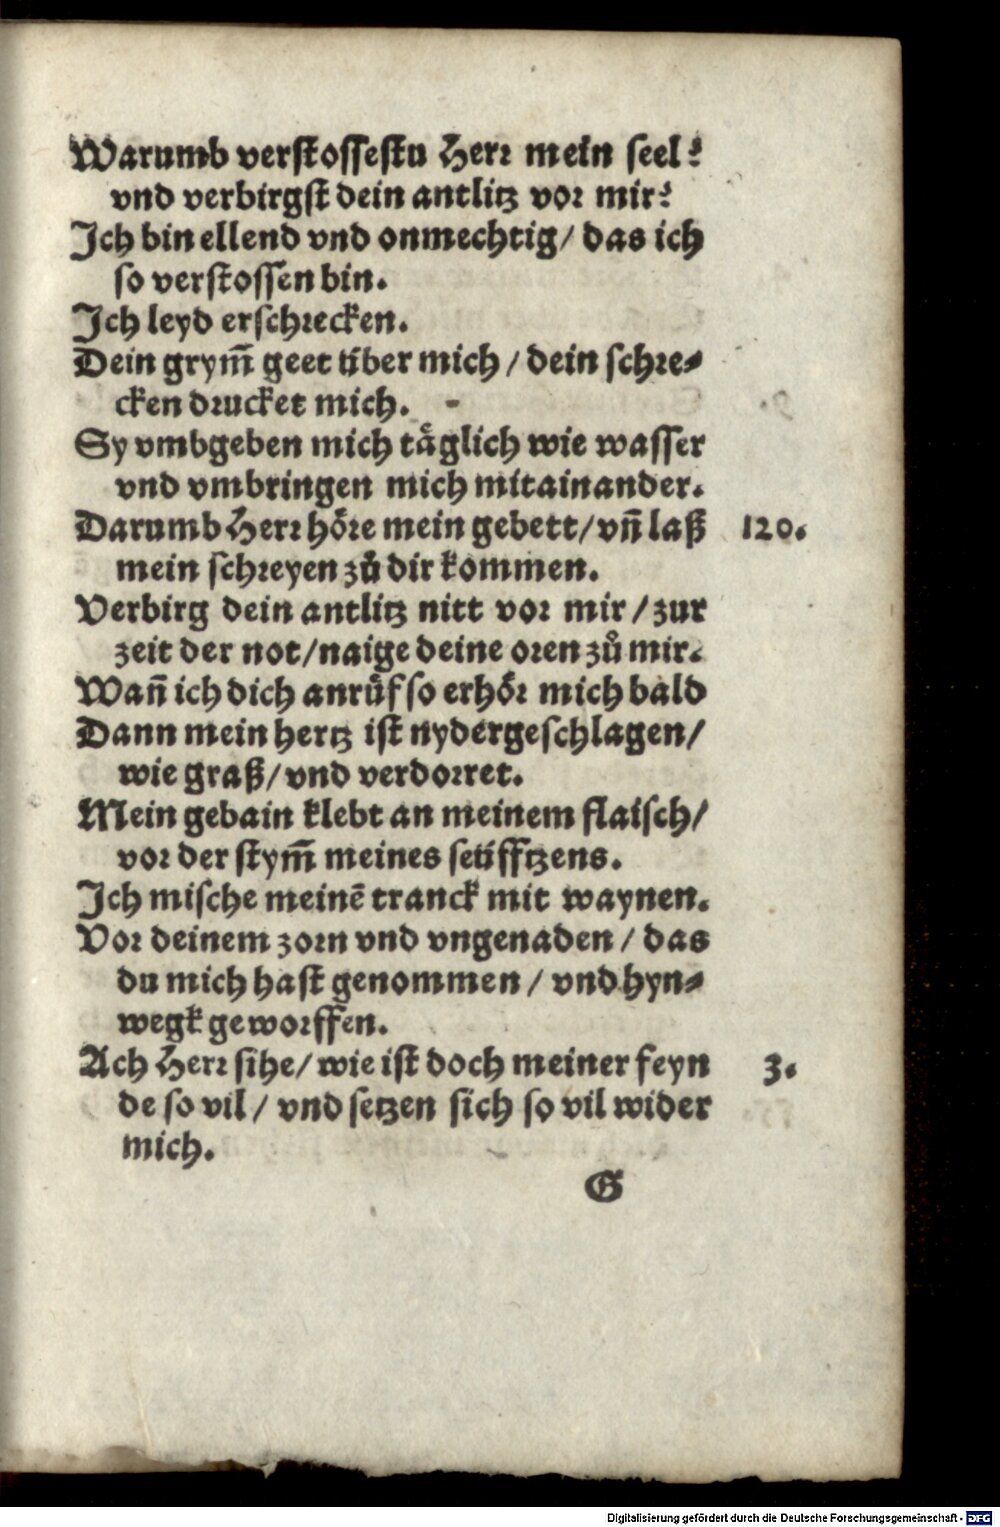 Warumb verstossestu Herr mein seel?
vnd verbirgst dein antlitz vor mir?
Ich bin ellend vnd onmechtig/ das ich
so verstossen bin.
Ich leyd erschrecken.
Dein grym̃ geet über mich / dein schre-
cken drucket mich.
Sy vmbgeben mich täglich wie wasser
vnd vmbringen mich mitainander.
Darumb Herr höre mein gebett/ vñ laß 120.
mein schreyen zů dir kommen.
Verbirg dein antlitz nitt vor mir / zur
zeit der not/ naige deine oren zů mir.
Wañ ich dich anrůf so erhör mich bald
Dann mein hertz ist nydergeschlagen/
wie graß/ vnd verdorret.
Mein gebain klebt an meinem flaisch/
vor der stym̃ meines seüfftzens.
Ich mische meinẽ tranck mit waynen.
Vor deinem zorn vnd vngenaden / das
du mich hast genommen / vnd hyn-
wegk geworffen.
Ach Herr sihe/ wie ist doch meiner feyn 3.
de so vil / vnd setzen sich so vil wider
mich.
G
Digitalisierung gefördert durch die Deutsche Forschungsgemeinschaft - DFG